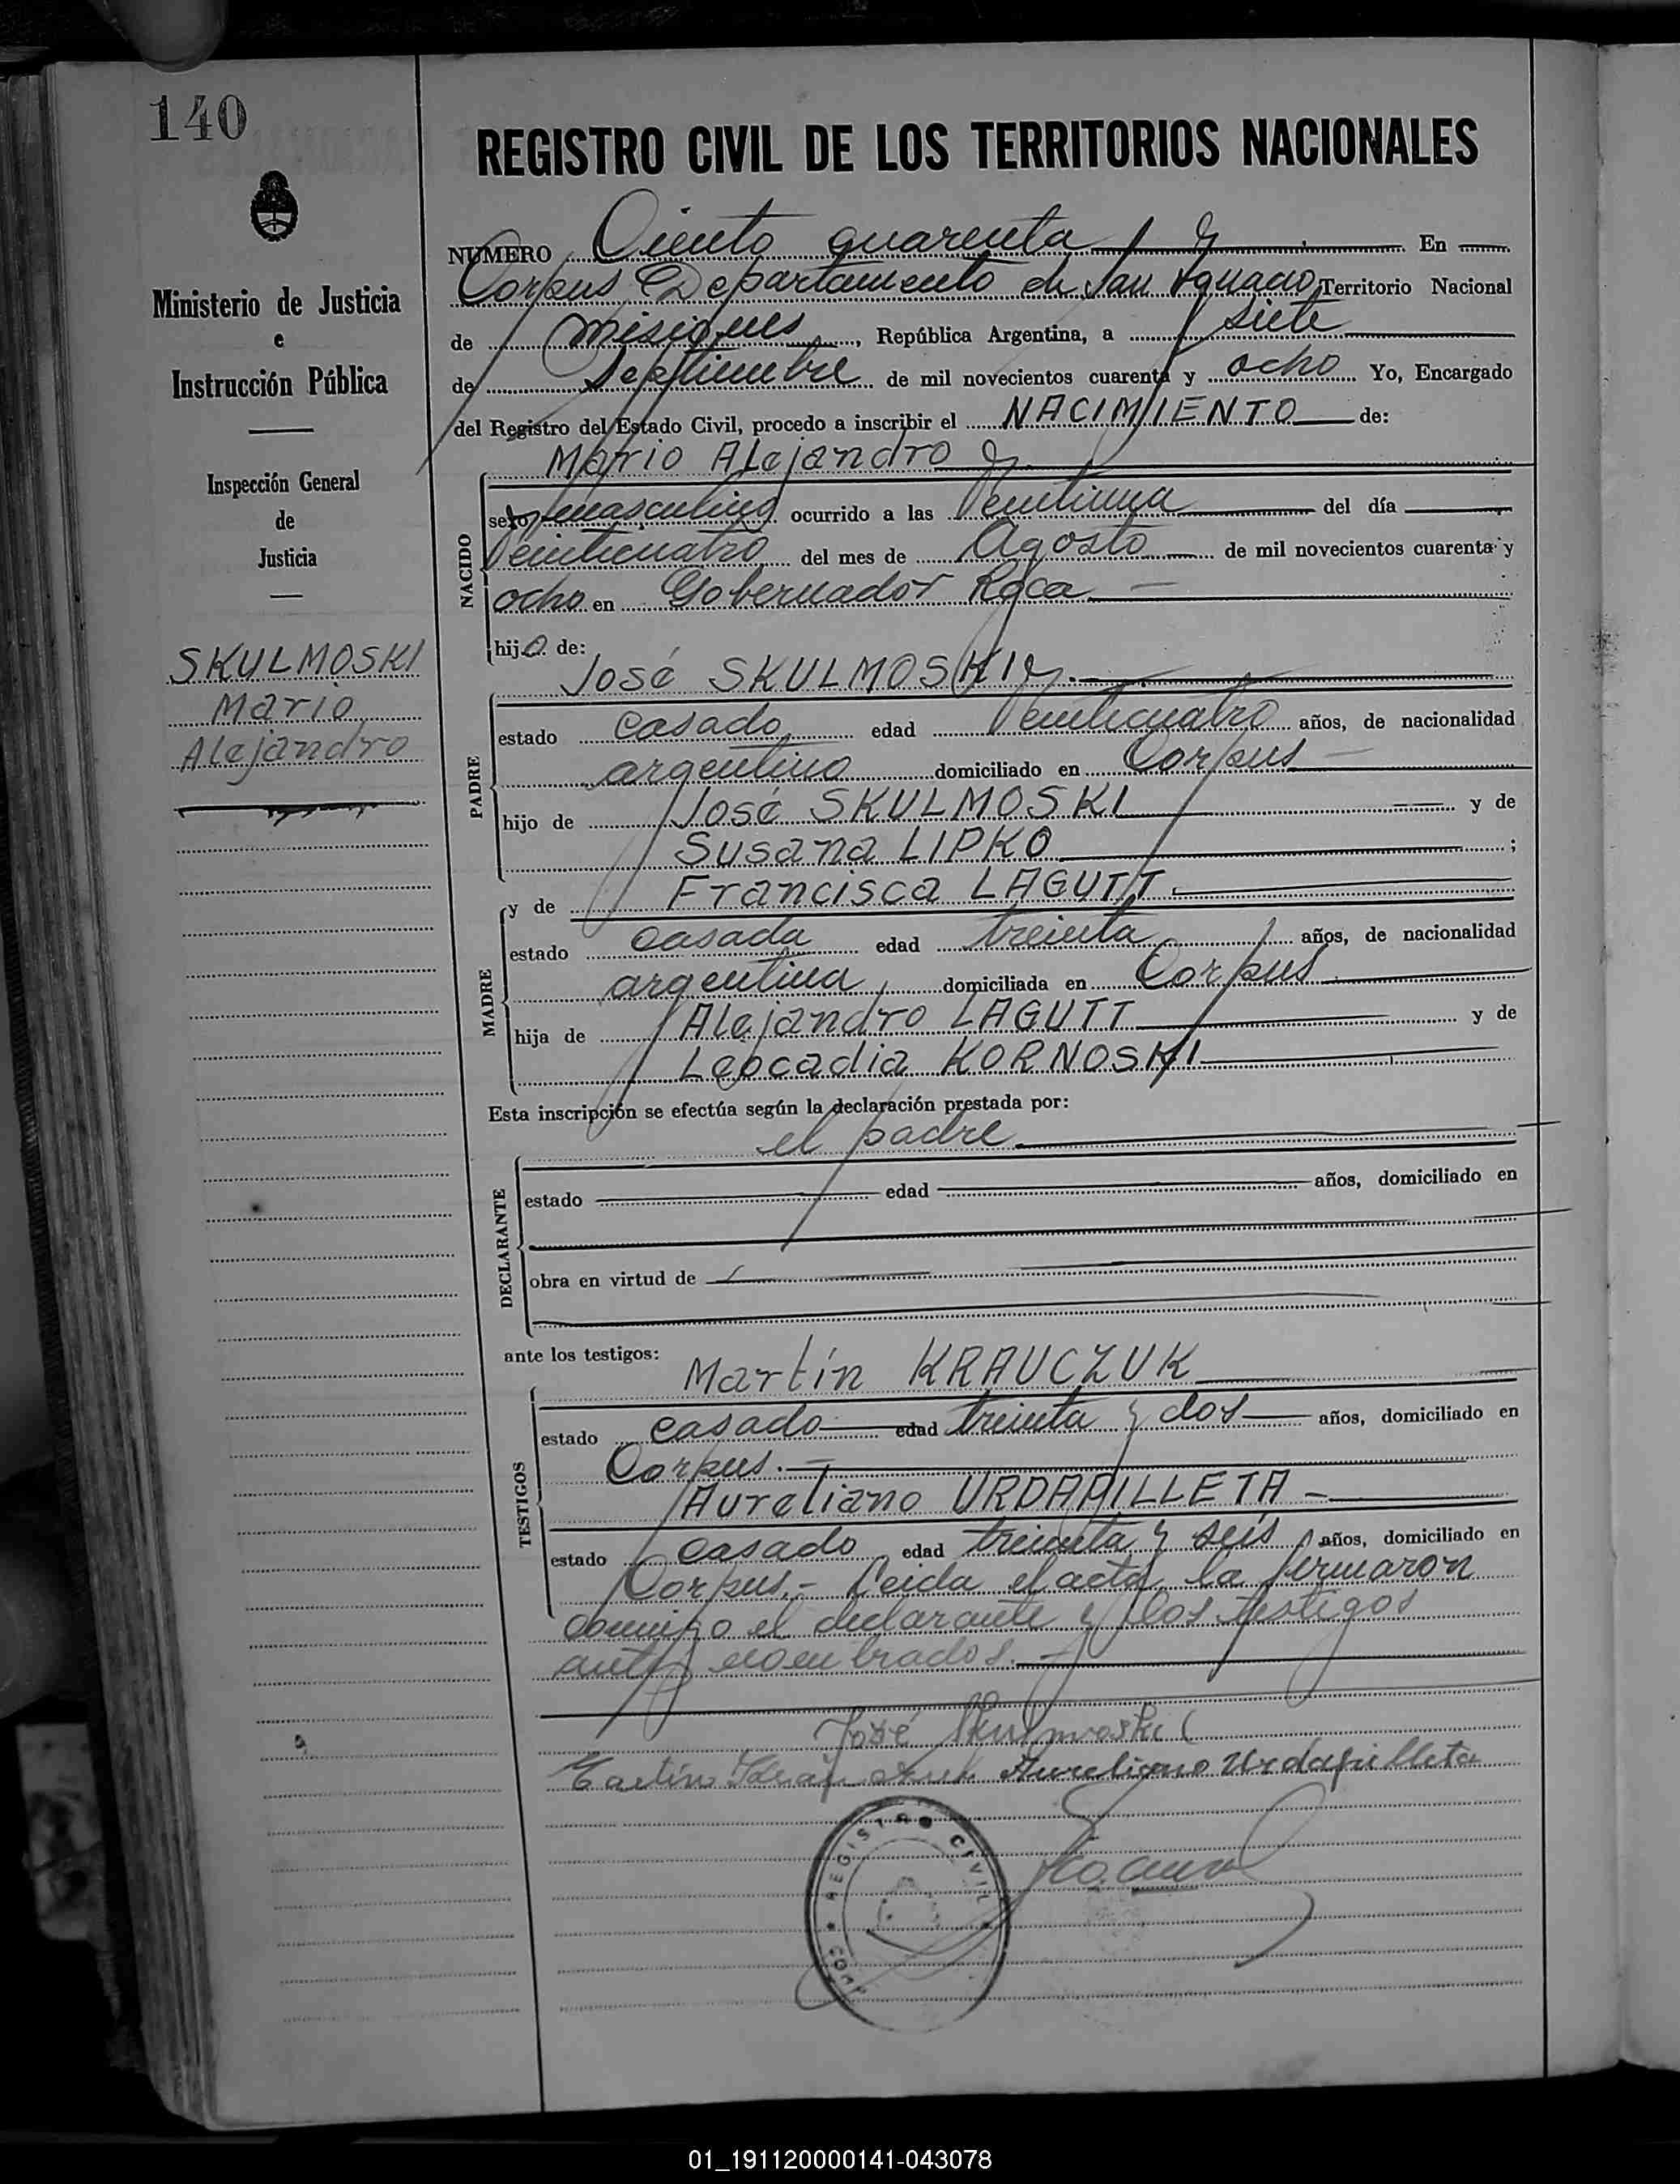 140
REGISTRO CIVIL DE LOS TERRITORIOS NACIONALES
Ministerio de Justicia
e
Instrucción Pública
Inspección General
de
Justicia
SKULMOSKI
Mario
Alejandro
NUMERO Ciento cuarenta En
Corpus Departamento de San Ignacio Territorio Nacional
de Misiones, República Argentina, a siete
de Septiembre de mil novecientos cuarenta y ocho Yo, Encargado
del Registro del Estado Civil, procedo a inscribir el NACIMIENTO de:
NACIDO
Mario Alejandro
sexo masculino ocurrido a las Veintiuna del día
Veinticuatro del mes de Agosto de mil novecientos cuarenta y
ocho en Gobernador Roca
hijo de:
PADRE
José SKULMOSKI
estado casado edad Veinticuatro años, de nacionalidad
argentino domiciliado en Corpus
hijo de José SKULMOSKI y de
Susana LIPKO ;
y de Francisca LAGUTT
MADRE
estado casada edad treinta años, de nacionalidad
argentina domiciliada en Corpus
hija de Alejandro LAGUTT y de
Leocadia KORNOSKI
Esta inscripción se efectúa según la declaración prestada por:
el padre
DECLARANTE
estado edad años, domiciliado en
obra en virtud de
ante los testigos:
TESTIGOS
Martín KRAUCZUK
estado casado edad treinta y dos años, domiciliado en
Corpus.
Aureliano URDAPILLETA
estado casado edad treinta y seis años, domiciliado en
Corpus.- Leida el acta, la firmaron
conmigo el declarante y los testigos
antes nombrados.
José Skulmoski
Aureliano Urdapilleta
REGISTRO CIVIL
01_191120000141-043078